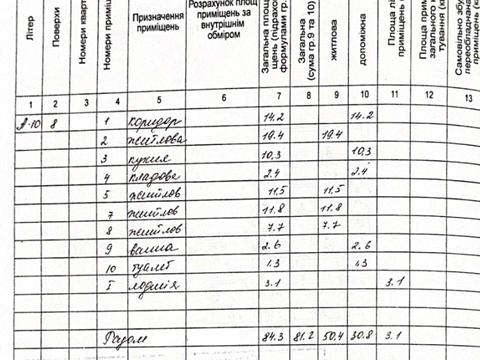 Літер
Поверхи
Номери кварт
Номери приміщ
Призначення приміщень
Розрахунок площ приміщень за внутрішнім обміром
Загальна площ
щень (підрахо
формулами гр.
Загальна (сума гр.9 та 10)
житлова
допоміжна
Площа лі
приміщень (
Площа прим
загального к
тування (к
Самовільно збу
переобладнана
приміщень (к
1 2 3 4 5 6 7 8 9 10 11 12 13
А-10 8 1 коридор 14.2 14.2
2 житлова 19.4 19.4
3 кухня 10,3 10,3
4 кладова 2.4 2.4
5 житлов 11.5 11.5
7 житлов 11.8 11.8
8 житлов 7.7 7.7
9 ванна 2.6 2.6
10 туалет 1.3
I лоджія 3.1 3.1
Разом 84.3 81.2 50.4 30.8 3.1